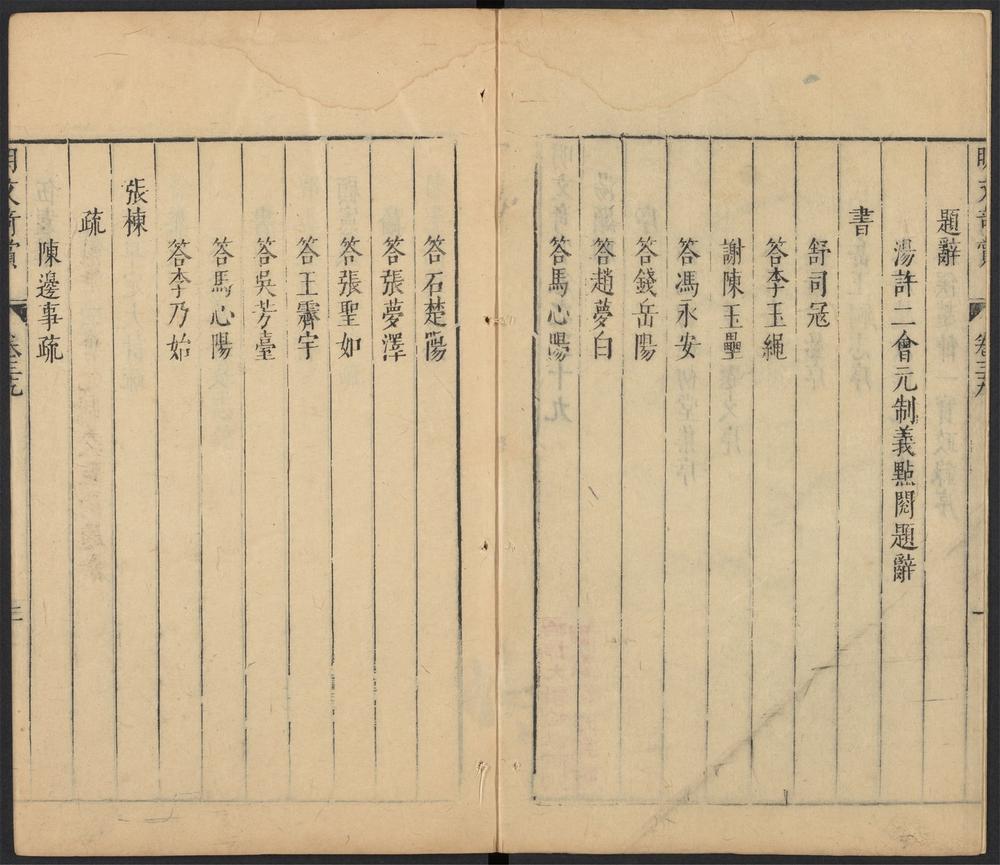 題辭
湯許二會元制義點閱題辭
書
舒司冦
答李玉繩
謝陳玉壘
答馮永安
答錢岳陽
答趙夢白
答馬心陽
答石楚陽
答張夢澤
答張聖如
答王霽宇
答吳芳臺
答馬心陽
答李乃始
張棟
疏
陳邊事疏
明文奇賞
卷三九